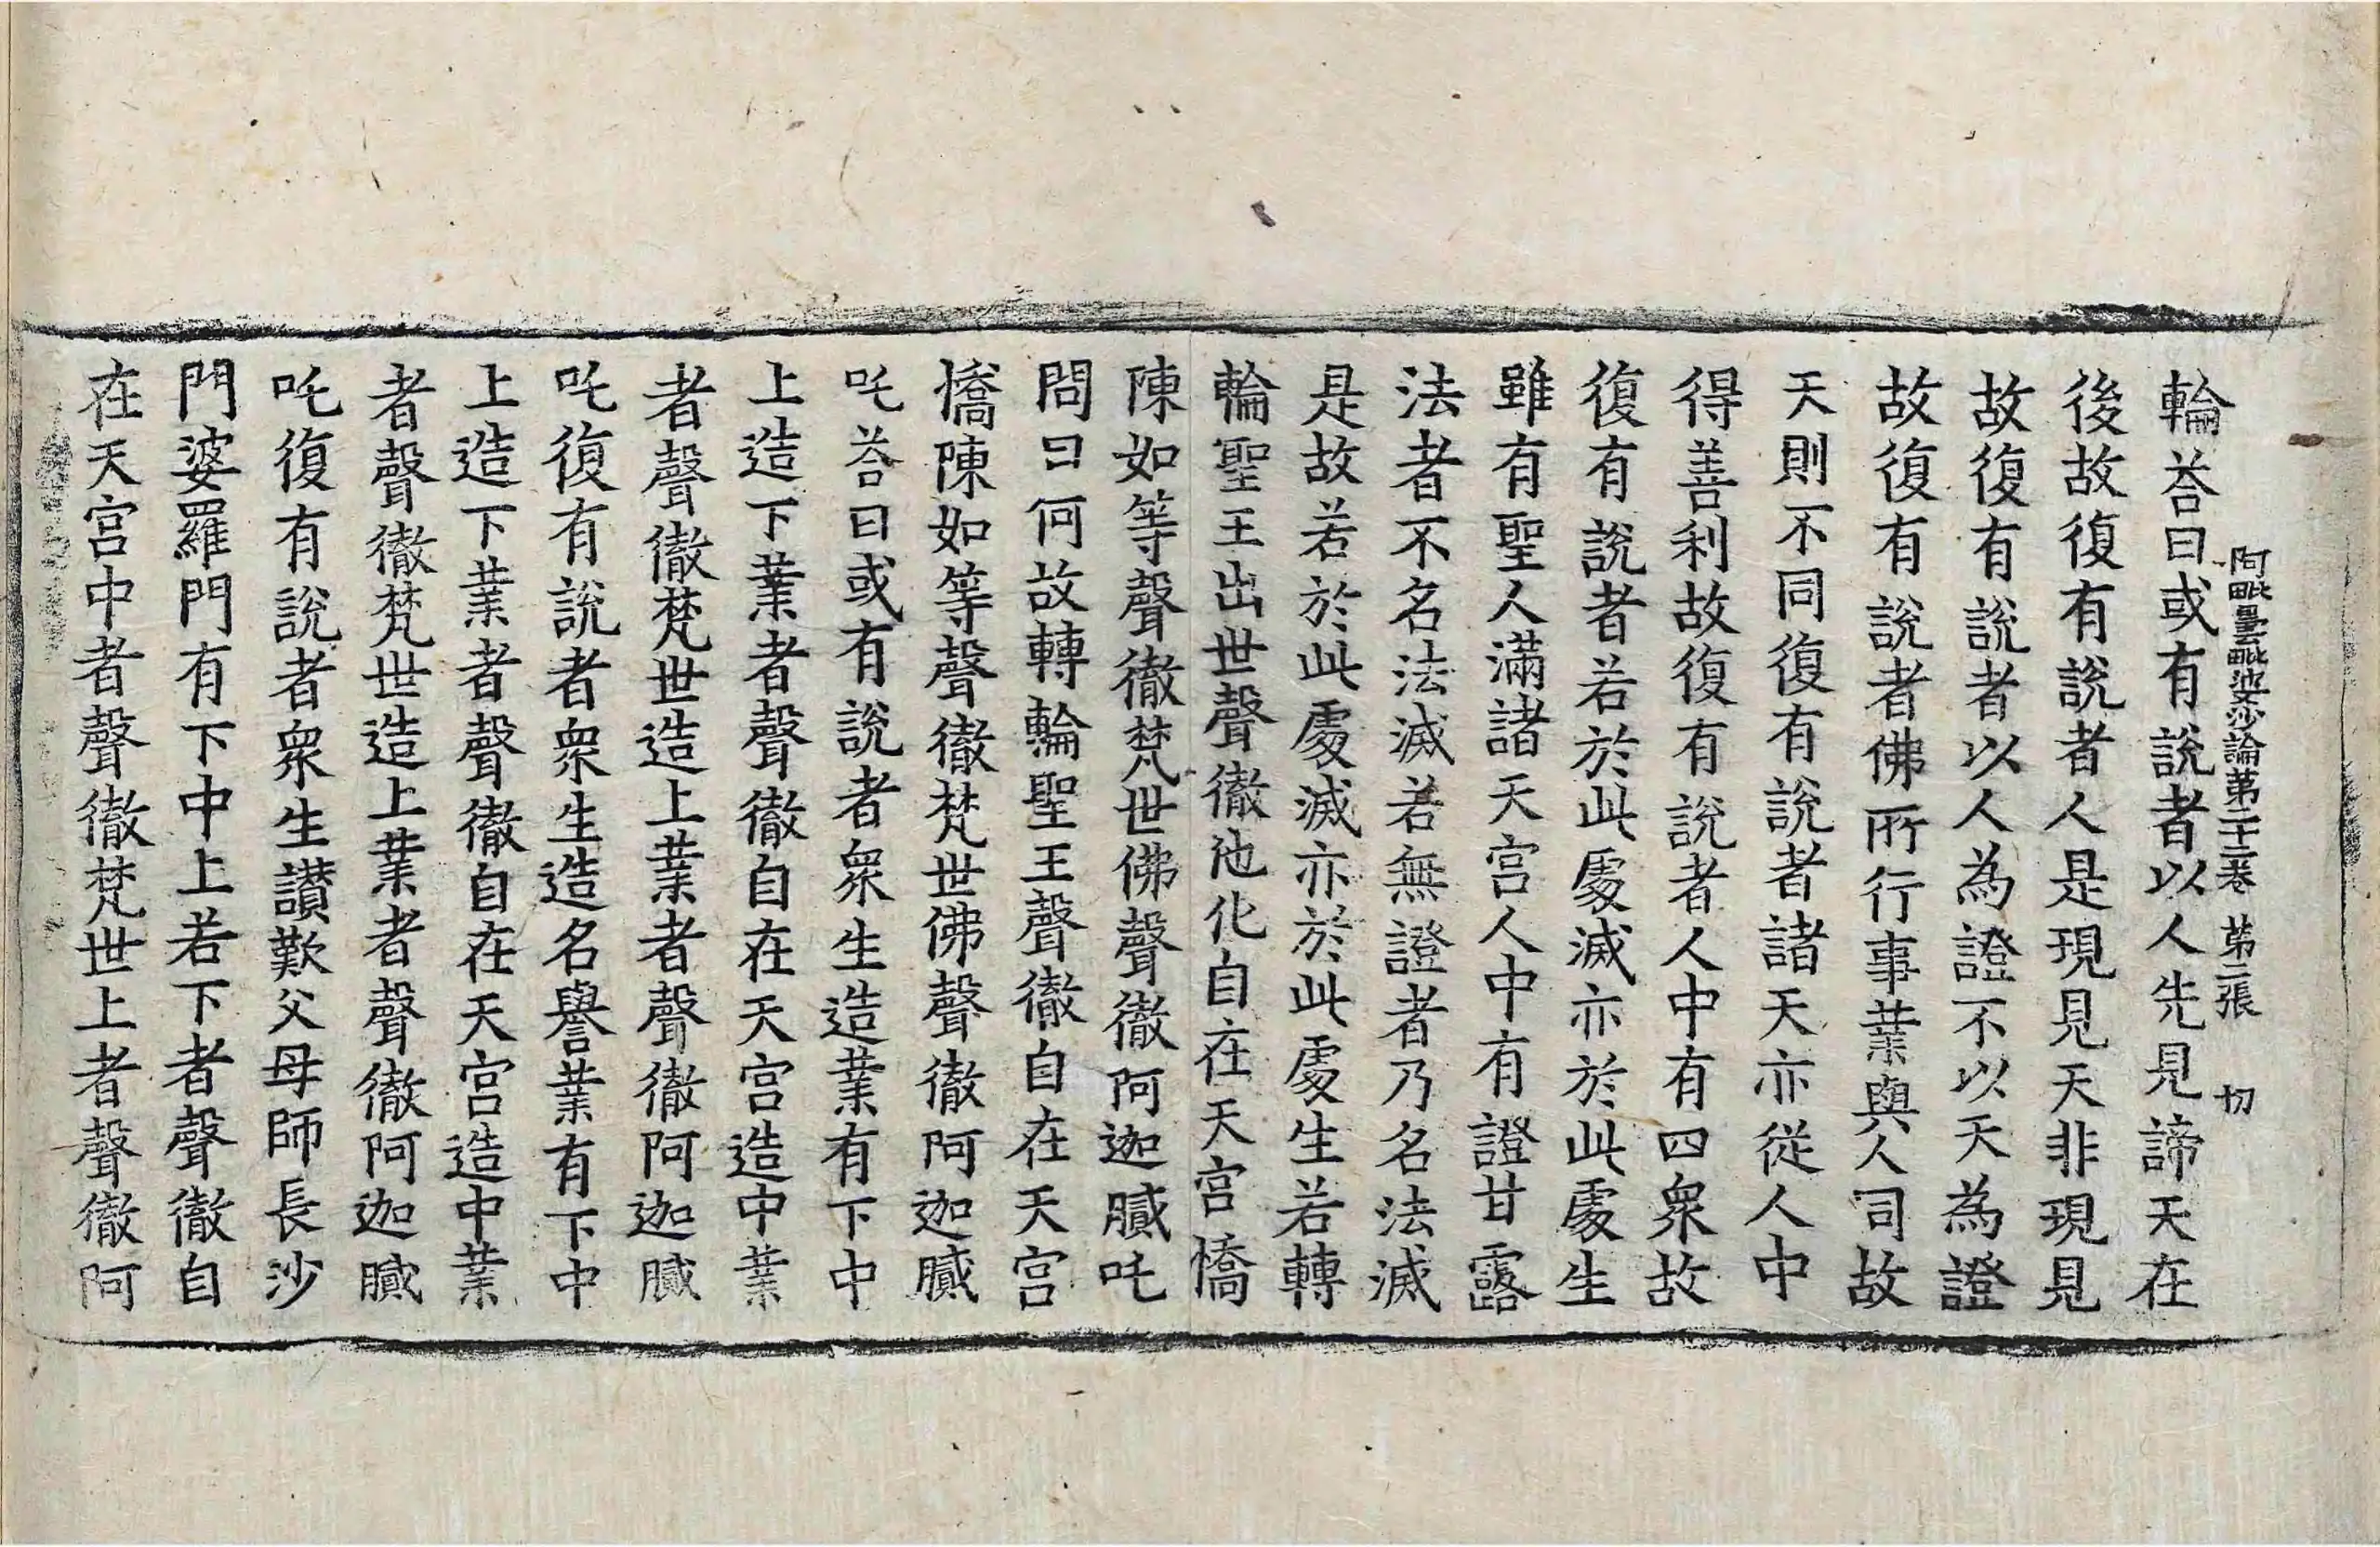 阿毗曇毗婆沙論第二十一卷 第二張 切
輪荅曰或有說者以人先見諦天在
後故復有說者人是現見天非現見
故復有說者以人為證不以天為證
故復有說者佛所行事業與人司故
天則不同復有說者諸天亦從人中
得善利故復有說者人中有四衆故
復有說者若於此處滅亦於此處生
雖有聖人滿諸天宮人中有證甘露
法者不名法滅若無證者乃名法滅
是故若於此處滅亦於此處生若轉
輪聖王出世聲徹他化自在天宮憍
陳如等聲徹梵世佛聲徹阿迦膩吒
問曰何故轉輪聖王聲徹自在天宮
憍陳如等聲徹梵世佛聲徹阿迦膩
吒荅曰或有說者衆生造業有下中
上造下業者聲徹自在天宮造中業
者聲徹梵世造上業者聲徹阿迦膩
吒復有說者衆生造名譽業有下中
上造下業者聲徹自在天宮造中業
者聲徹梵世造上業者聲徹阿迦膩
吒復有說者衆生讃歎父母師長沙
門婆羅門有下中上若下者聲徹自
在天宮中者聲徹梵世上者聲徹阿